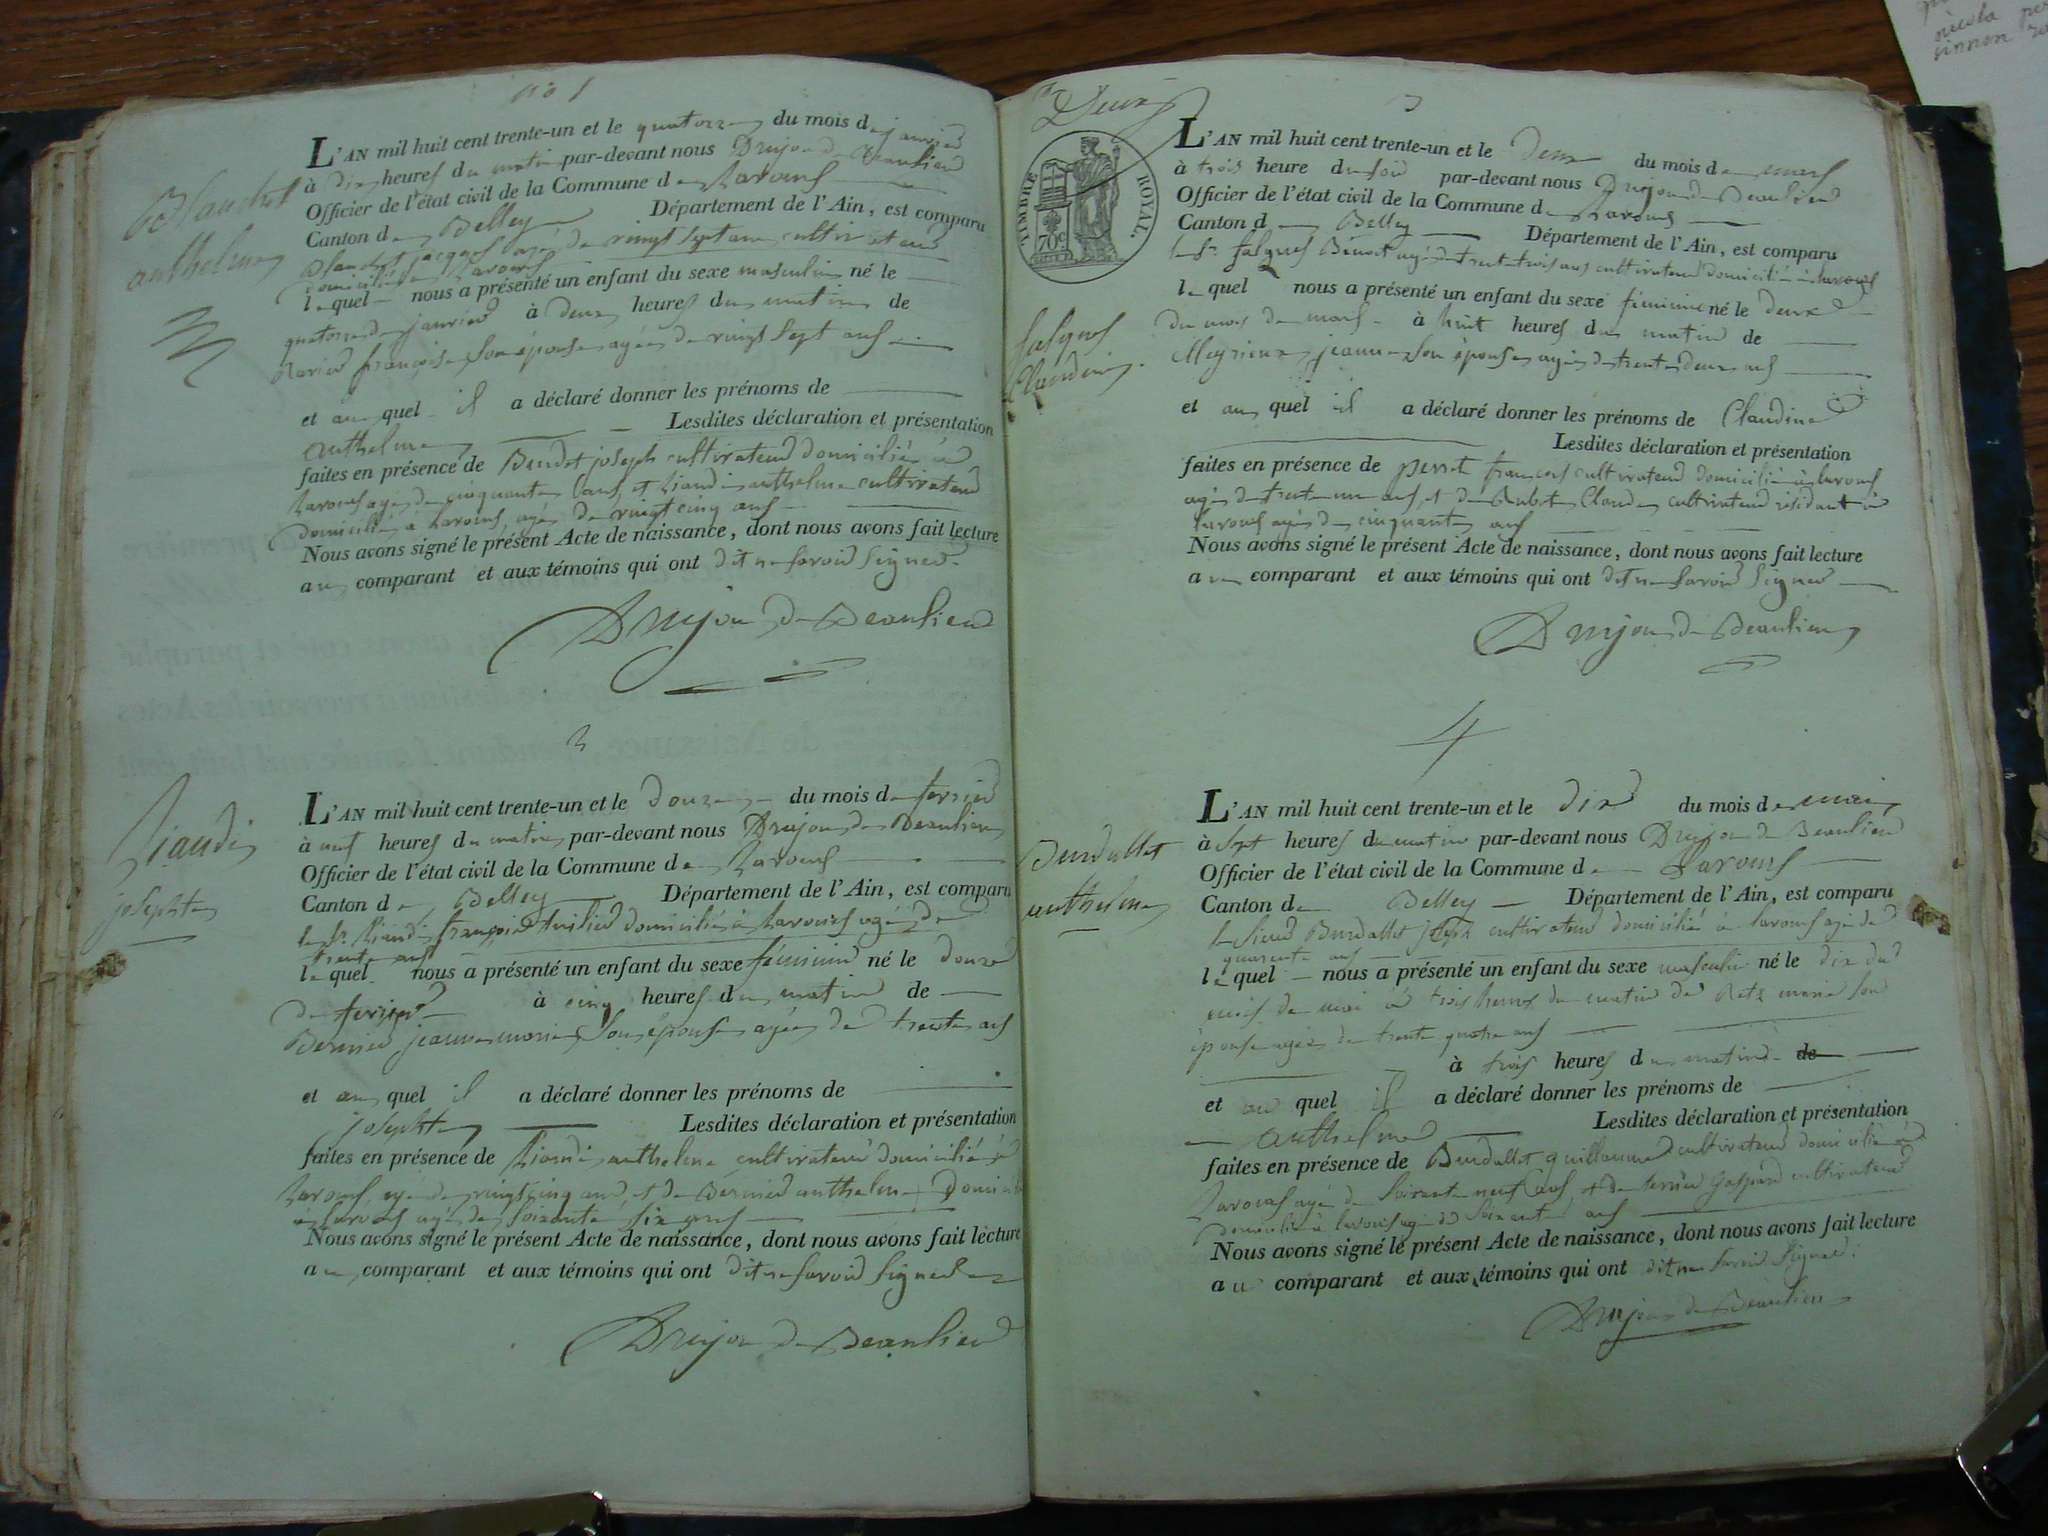 no 1
Blanchet
anthelme
L'AN mil huit cent trente-un et le quatorze du mois de janvier
à dix heures du matin par-devant nous Drujon de Beaulieu
Officier de l'état civil de la Commune de Lavours
Canton de Belley Département de l'Ain, est comparu
Blanchet jacques agé de vingt sept ans cultivateur
domicilié à Lavours
lequel nous a présenté un enfant du sexe masculin né le
quatorze de janvier à deux heures du matin de
françoise, son épouse, agée de vingt sept ans
et au quel il a déclaré donner les prénoms de
anthelme Lesdites déclaration et présentation
faites en présence de joseph cultivateur domicilié à
Lavours agé de cinquante ans, et Liaudi anthelme cultivateur
domicilié a Lavours, agé de vingt cinq ans
Nous avons signé le présent Acte de naissance, dont nous avons fait lecture
au comparant et aux témoins qui ont dit ne savoir signer.
Drujon de Beaulieu
2
Liaudi
josephte
L'AN mil huit cent trente-un et le douze du mois de fevrier
à neuf heures du matin par-devant nous Drujon de Beaulieu
Officier de l'état civil de la Commune de Lavours
Canton de Belley Département de l'Ain, est comparu
le Sr. Liaudi françois domicilié à Lavours agé de
trente ans
lequel nous a présenté un enfant du sexe féminin né le douze
de fevrier à cinq heures du matin de
Bernier jeanne marie, son épouse, agée de trente ans
et au quel il a déclaré donner les prénoms de
josephte Lesdites déclaration et présentation
faites en présence de Liaudi anthelme cultivateur domicilié à
Lavours, agé de vingt cinq ans, et de Bernier anthelme domicilié
à Lavours agé de soixante six ans
Nous avons signé le présent Acte de naissance, dont nous avons fait lecture
au comparant et aux témoins qui ont dit ne savoir signer
Drujon de Beaulieu
Deux
3
TIMBRE ROYAL
70c
falques
Claudine
L'AN mil huit cent trente-un et le deux du mois de mars
à trois heure du soir par-devant nous Drujon de Beaulieu
Officier de l'état civil de la Commune de Lavours
Canton de Belley Département de l'Ain, est comparu
le Sr. falques Benoit agé de trente trois ans cultivateur domicilié à Lavours
lequel nous a présenté un enfant du sexe féminin né le deux
du mois de mars à huit heures du matin de
Meyrieux jeanne, son épouse, agée de trente deux ans
et au quel il a déclaré donner les prénoms de Claudine
Lesdites déclaration et présentation
faites en présence de perret françois cultivateur domicilié à Lavours
agé de trente un ans, et de Claude, cultivateur résidant à
Lavours agé de cinquante ans
Nous avons signé le présent Acte de naissance, dont nous avons fait lecture
au comparant et aux témoins qui ont dit ne savoir signer
Drujon de Beaulieu
4
Burdallet
anthelme
L'AN mil huit cent trente-un et le dix du mois de mai
à sept heures du matin par-devant nous Drujon de Beaulieu
Officier de l'état civil de la Commune de Lavours
Canton de Belley Département de l'Ain, est comparu
le Sieur Burdallet joseph cultivateur domicilié à Lavours agé de
quarante ans
lequel nous a présenté un enfant du sexe masculin né le dix du
mois de mai à trois heures du matin de Retz marie son
épouse agée de trente quatre ans
à trois heures du matin de
et au quel il a déclaré donner les prénoms de
anthelme Lesdites déclaration et présentation
faites en présence de Burdallet guillaume cultivateur domicilié à
Lavours agé de soixante neuf ans, et de gaspard cultivateur
domicilié à Lavours agé de soixante ans
Nous avons signé le présent Acte de naissance, dont nous avons fait lecture
au comparant et aux témoins qui ont dit ne savoir signer.
Drujon de Beaulieu